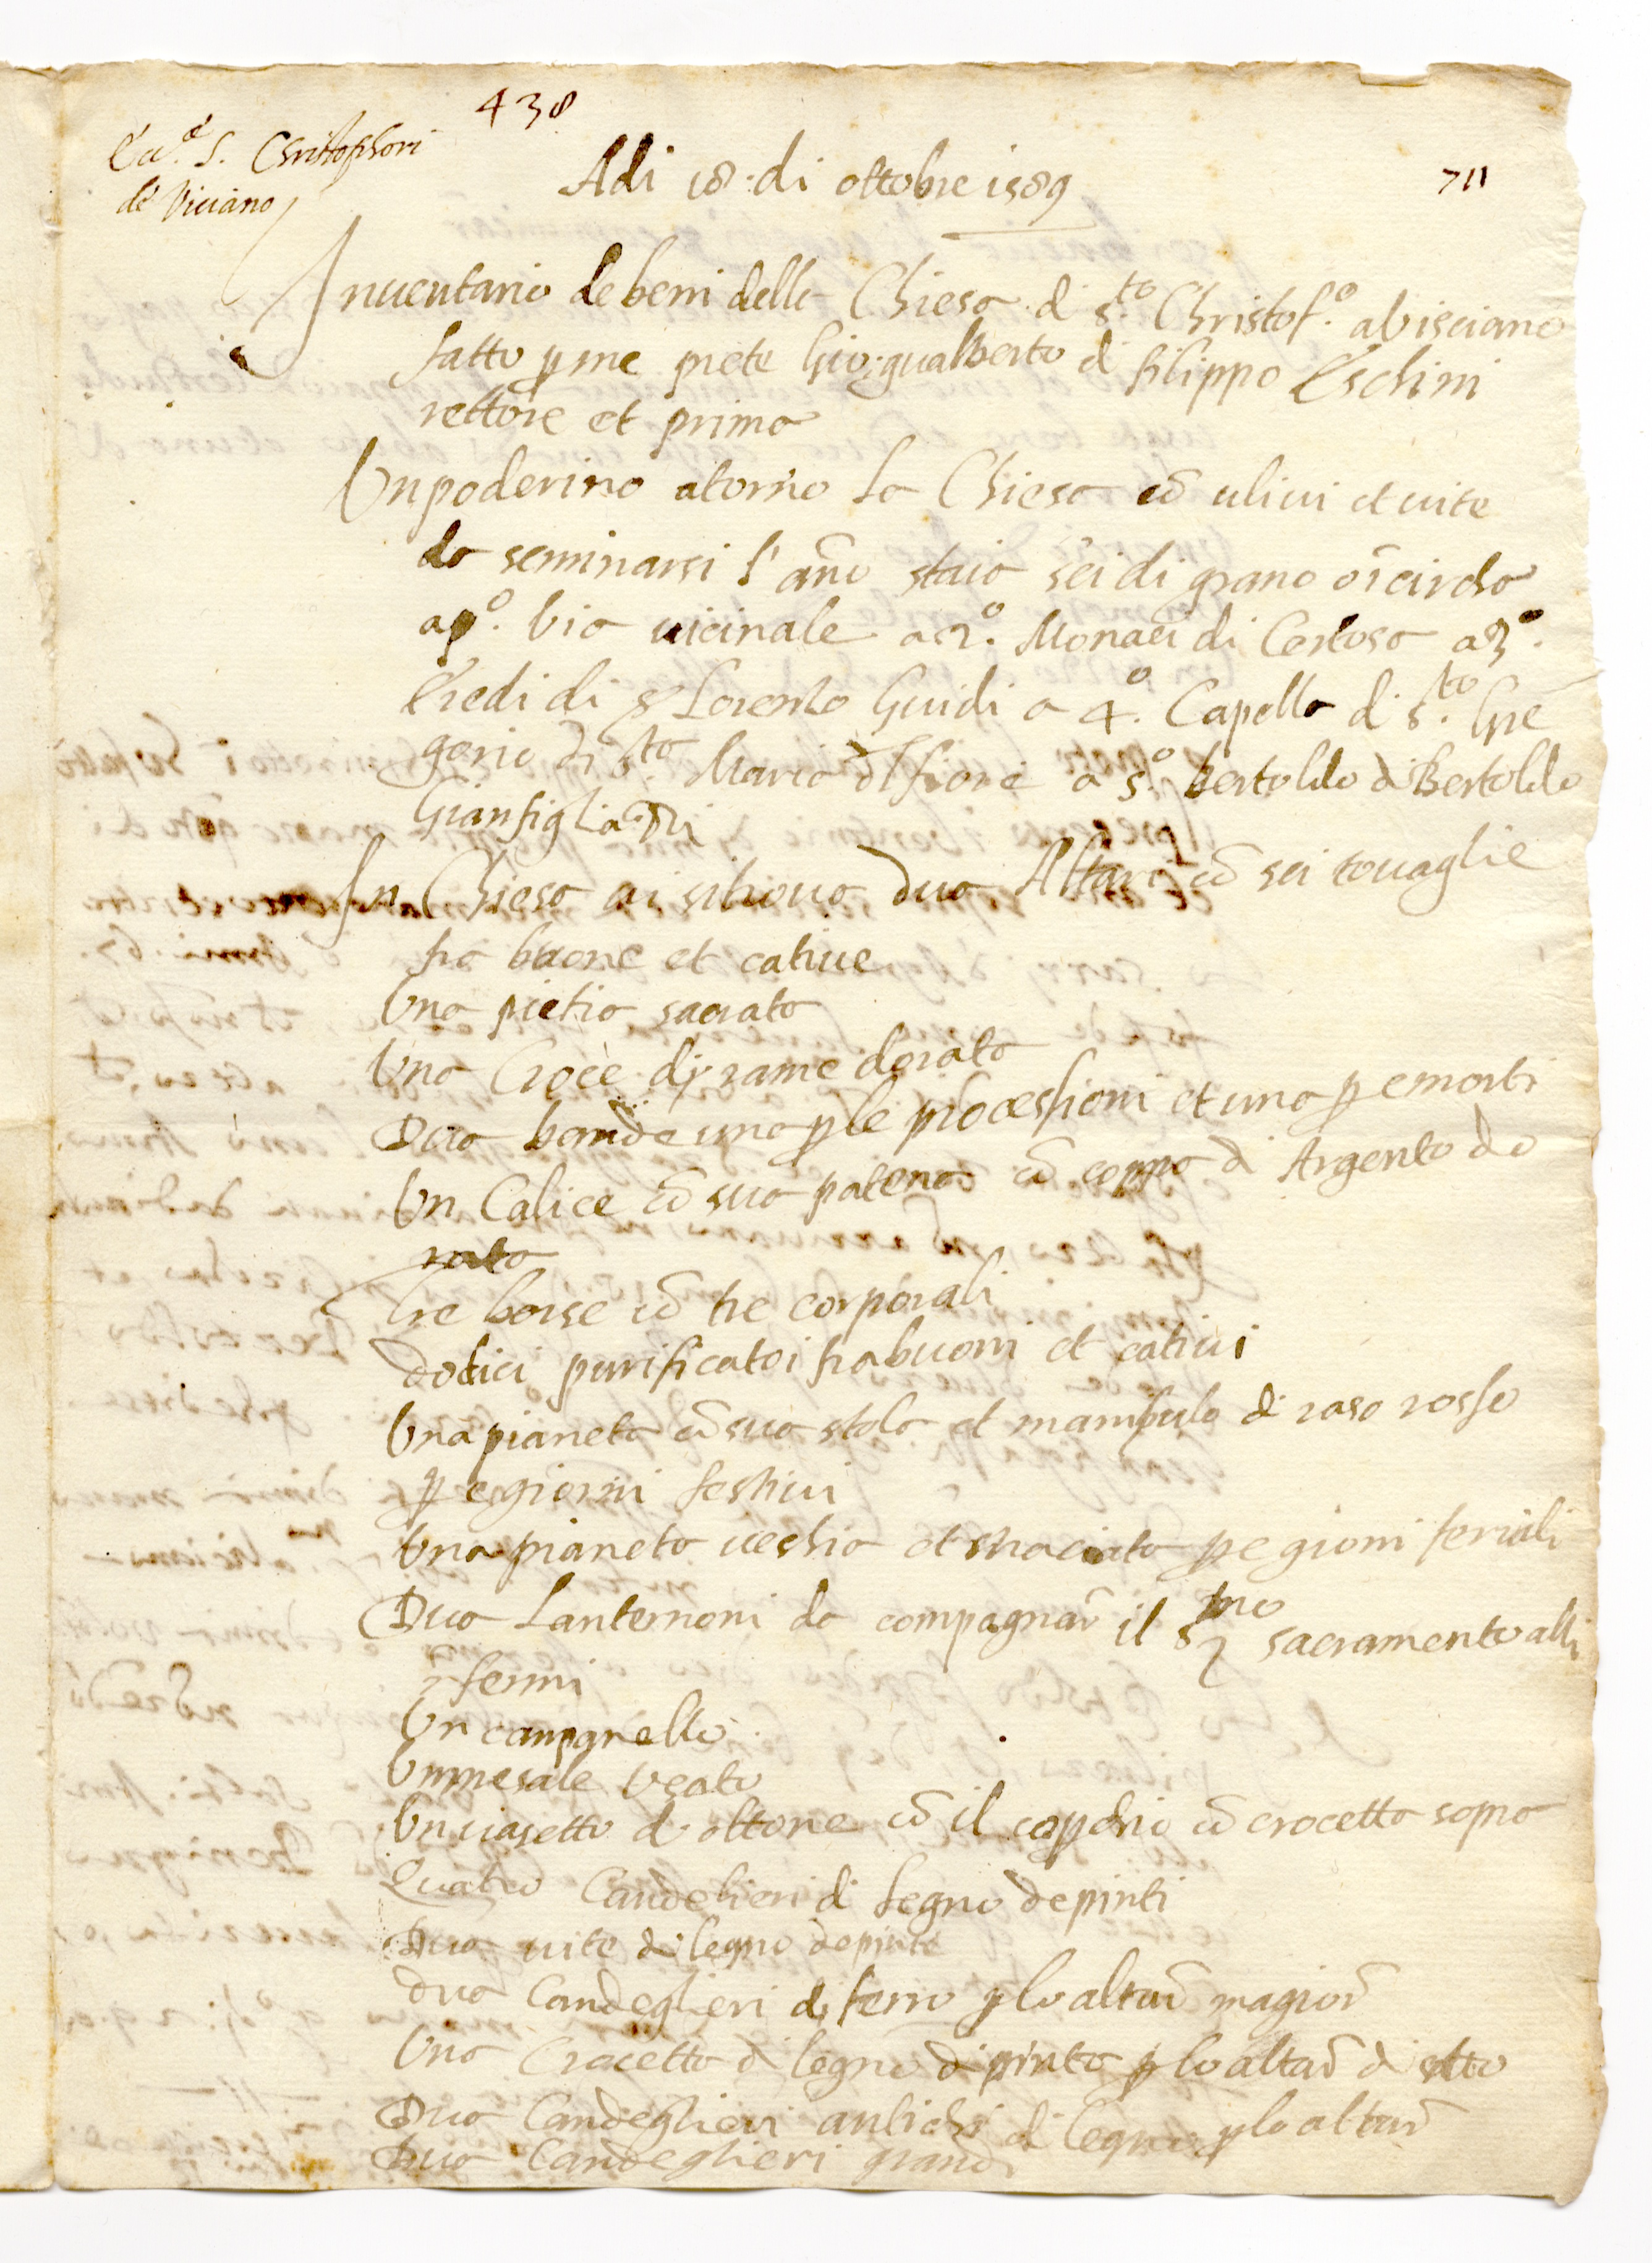 438
Ecc.ª S. Christophori
de Viciano
Adi 18 di ottobre 1589
711
Inuentario de beni della Chiesa di s.to Christof.o a Visciano
fatto p me prete Gio: gualberto di filippo Eschini
rettore et prima
Un poderino atorno la Chiesa cō uliui et uite
da seminarsi l'año staia sei di grano ī circha
a p.o Via uicinale a 2.o Monaci di Certosa a 3.o
Eredi di Lorenzo Guidi a 4.o Capella di s.to Gre
gorio di s.ta Maria dl fiore a 5.o Bertoldo di Bertoldo
Gianfigliazi
In Chiesa ui si troua dua Altari cō sei touaglie
fra buone et catiue
Una pietra sacrata
Una Croce di rame dorata
Dua bande una p le processioni et una p e morti
Un Calice cō sua patena cō coppa di Argento do
rata
Tre borse cō tre corporali
Dodici purificatoi fra buoni et catiui
Una pianeta cō sua stola et manipulo di raso rosso
p e giorni festiui
Una pianeta uechia et straciata p e giorni feriali
Dua Lanternoni da compagnar il s.mo sacramento alli
īfermi
Un campanello
Un mesale usato
Un uasetto di ottone cō il copchio cō crocetta sopra
Quatro Candelieri di legno depinti
Dua uite di legno depinte
dua Candeglieri di ferro p lo altar magior
Una Crocetta di legno dipinta p lo altar di sotto
Dua Candeglieri antichi di legno p lo altar
Dua Candeglieri grandi